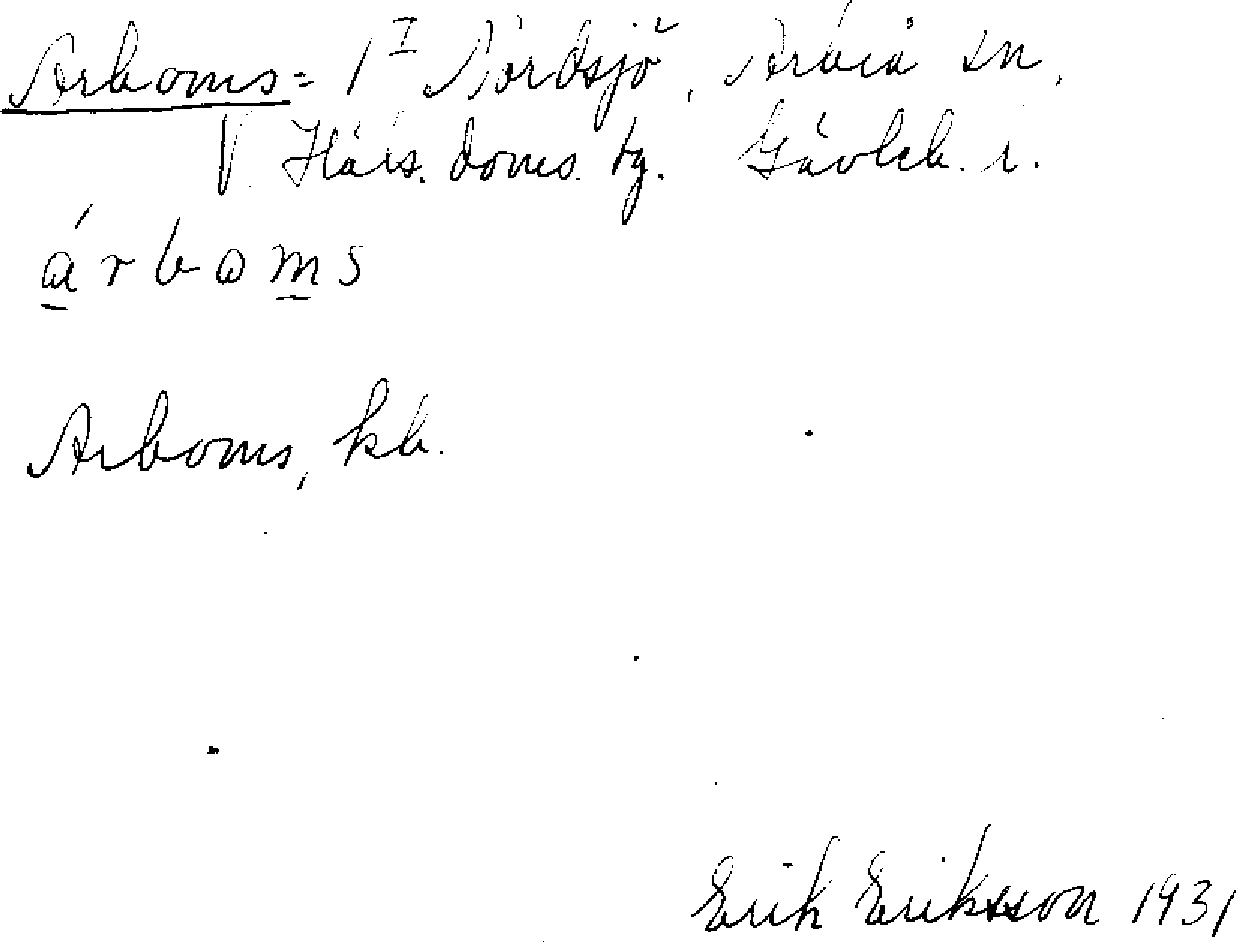 Arboms = 1 I Nordsjö, Årbrå sn,
V. Häls. doms. tg. Gävleb. l.
árboms
Arboms, kb.
Erik Eriksson 1931